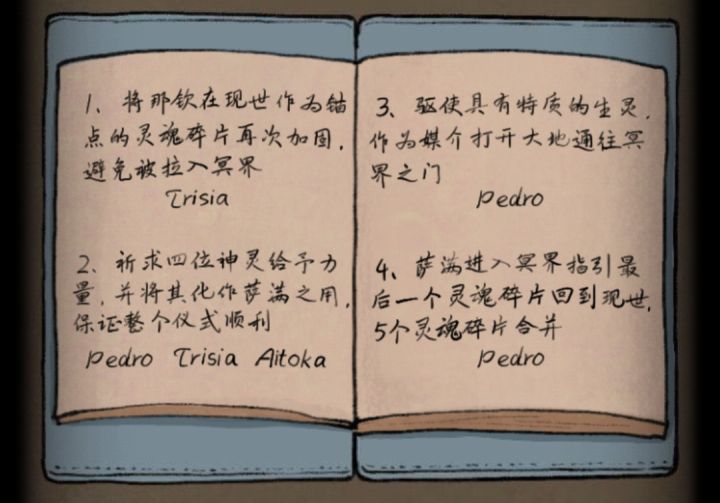 1、将那钦在现世作为锚
点的灵魂碎片再次加固，
避免被拉入冥界
Trisia
2、祈求四位神灵给予力
量，并将其化作萨满之用，
保证整个仪式顺利
Pedro Trisia Aitoka
3、驱使具有特质的生灵，
作为媒介打开大地通往冥
界之门
Pedro
4、萨满进入冥界指引最
后一个灵魂碎片回到现世，
5个灵魂碎片合并
Pedro